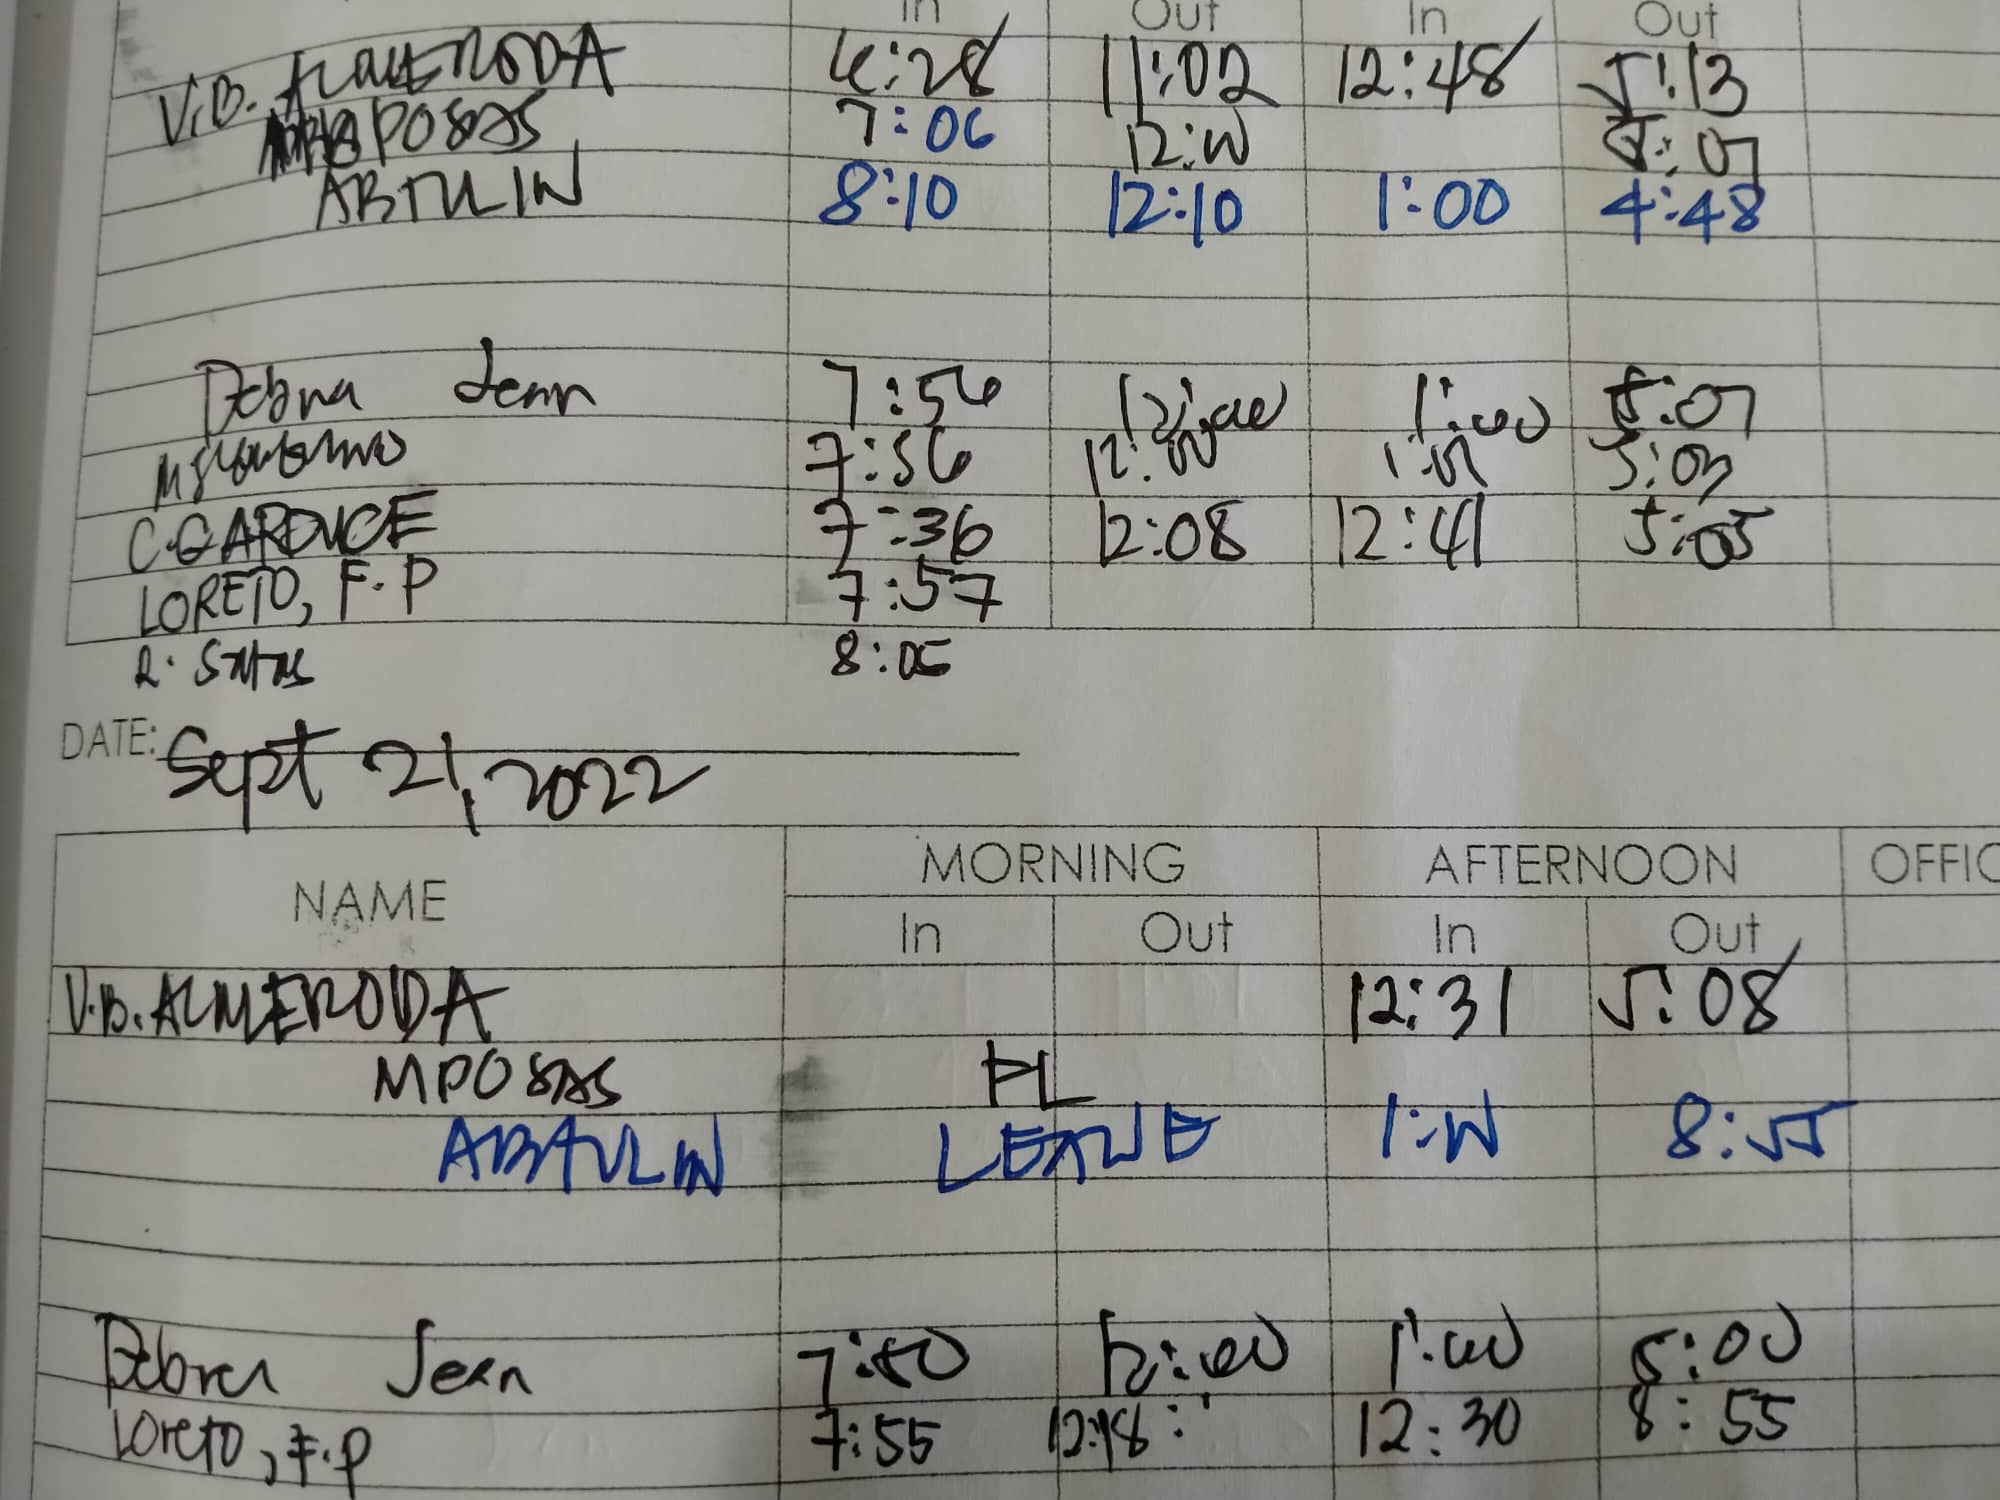 In Out In Out
V.B. ALMERODA 6:28 11:02 12:48 5:13
POSAS 7:06 12:00 5:07
ABTULIN 8:10 12:10 1:00 4:48
Debra Jean 7:56 12:00 1:00 5:07
7:56 12:00 1:01 5:03
C. GARDUCE 7:36 12:08 12:41 5:05
LORETO, F.P 7:57
R. 8:05
DATE: Sept 21, 2022
NAME MORNING AFTERNOON OFFIC
In Out In Out
V.B. ALMERODA 12:31 5:08
MPOSAS PL
ABTULIN LEAVE 1:00 8:55
Debra Jean 7:50 12:00 1:00 5:00
Loreto, F.P 7:55 12:18 12:30 8:55